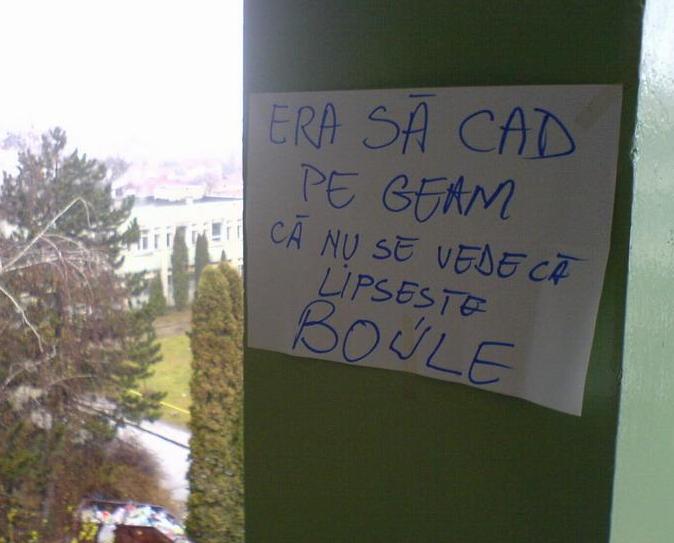 ERA SĂ CAD
PE GEAM
CĂ NU SE VEDE CĂ
LIPSEȘTE
BOULE